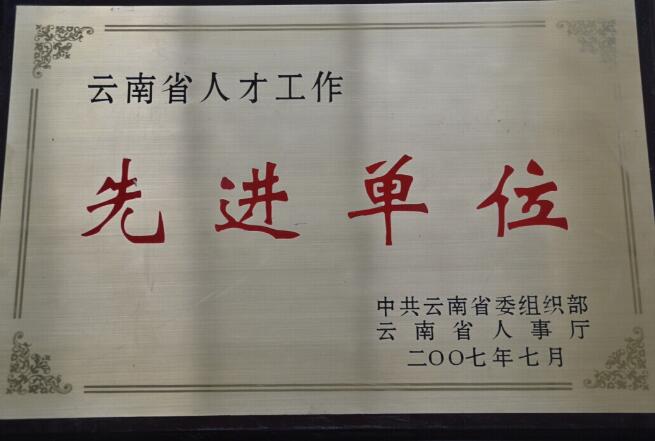 云南省人才工作
先进单位
中共云南省委组织部
云南省人事厅
二〇〇七年七月